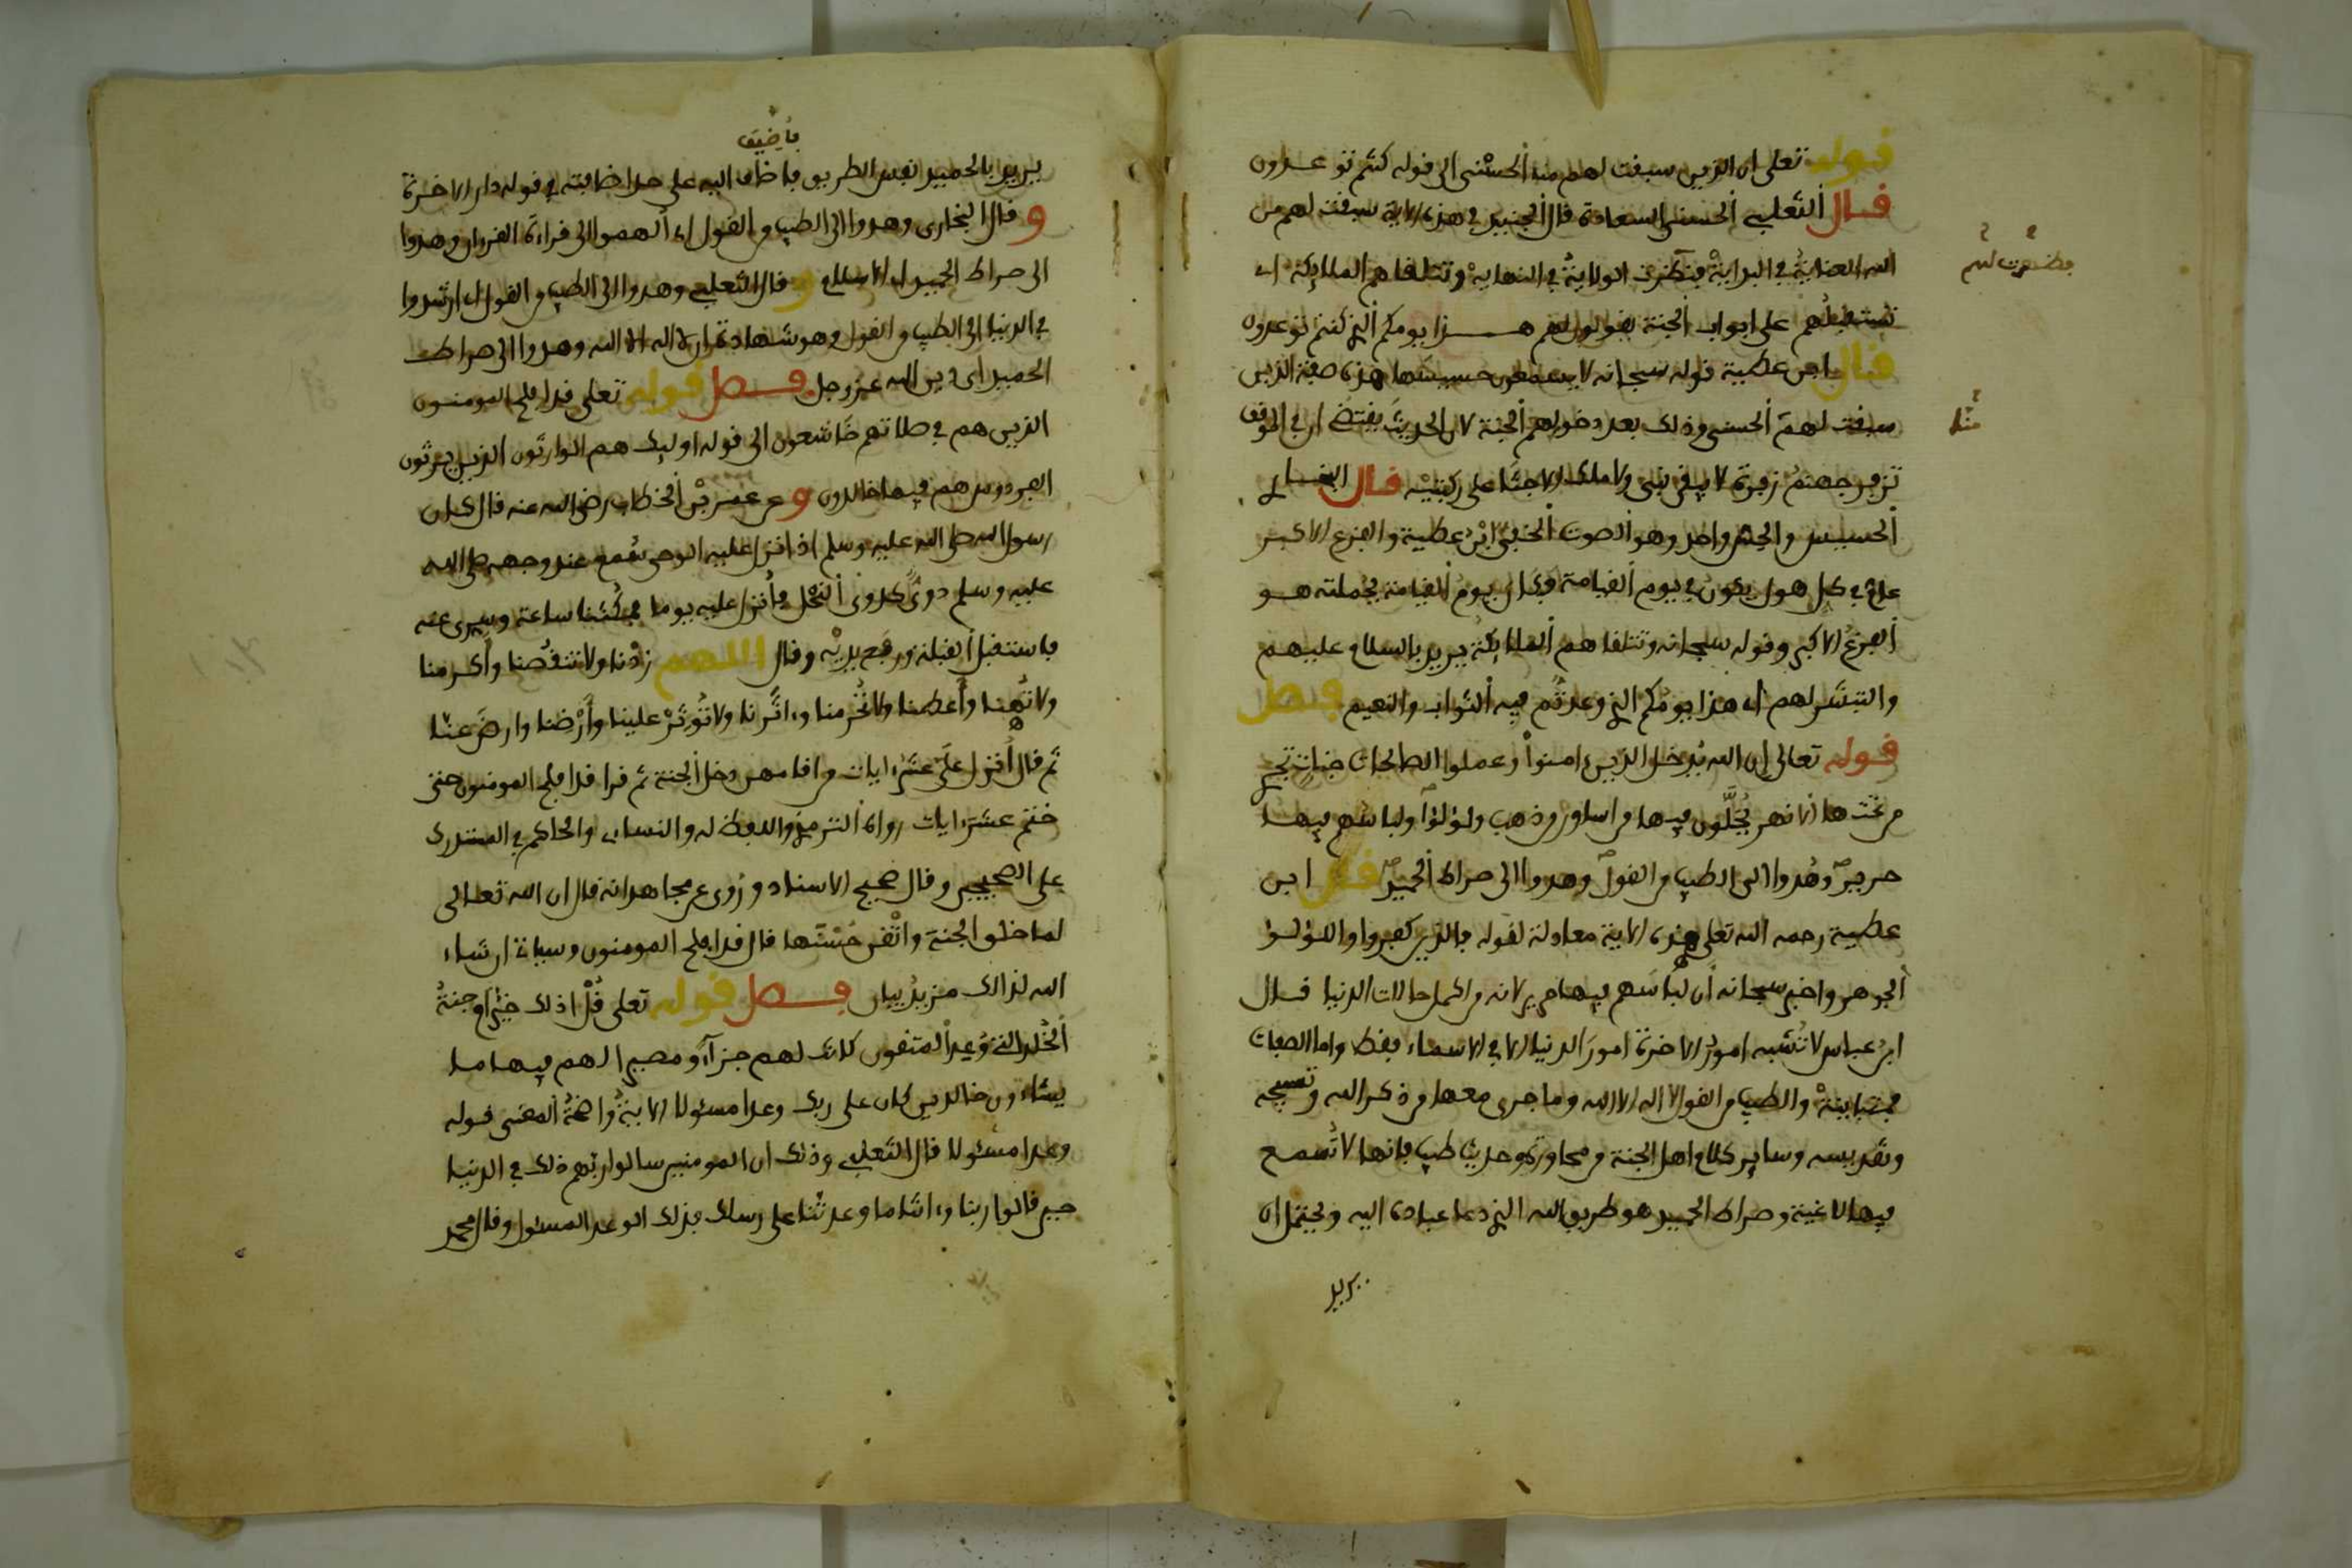 قوله تعلى ان الذين سبقت لهم منا الحسنى الى قوله كنتم توعدون
قال الثعلبي الحسنى السعادة قال الجنيد في هذه الاية سبقت لهم من
الله العناية في البداية فظهرت الولاية في النهاية وتتلقاهم الملايكة اي
تستقبلهم على ابواب الجنة يقولون لهم هذا يومكم الذي كنتم توعدون
قال ابن عطية قوله سبحانه لا يسمعون حسيسها هذه صفة الذين
سبقت لهم الحسنى وذلك بعد دخولهم الجنة لان الحديث يقتضي ان في الموقف
تزفر جهنم زفرة لا يبقى نبي ولا ملك الا جثا على ركبتيه قال البخاري
الحسيس والحس واحد وهو الصوت الخفي ابن عطية والفزع الاكبر
عام في كل هول يكون في يوم القيامة فكان يوم القيامة بجملته هو
الفزع الاكبر وقوله سبحانه وتتلقاهم الملايكة يريد بالسلام عليهم
والتبشير لهم اي هذا يومكم الذي وعدتم فيه الثواب والنعيم فصل
قوله تعالى ان الله يدخل الذين ءامنوا وعملوا الصالحات جنات تجري
من تحتها الانهر يحلون فيها من اساور من ذهب ولؤلؤا ولباسهم فيها
حرير وهدوا الى الطيب من القول وهدوا الى صراط الحميد قال ابن
عطية رحمه الله تعلى هذه الاية معادلة لقوله فالذين كفروا واللؤلؤ
الجوهر واخبر سبحانه ان لباسهم فيها حرير لانه من اكمل حالات الدنيا قال
ابن عباس لا تشبه امور الاخرة امور الدنيا الا في الاسماء فقط واما الصفات
فمتباينة والطيب من القول لا اله الا الله وما جرى معها من ذكر الله وتسبيحه
وتقديسه وساير كلام اهل الجنة من محاورة وحديث طيب فانها لا تسمع
فيها لاغية وصراط الحميد هو طريق الله الذي دعا عباده اليه ويحتمل ان
يريد
فأضيق
يريد بالحميد نفس الطريق فاضاف اليه على حد اضافته في قوله دار الاخرة
و قال البخاري وهدوا الى الطيب من القول اي ألهموا الى قراءة القرءان وهدوا
الى صراط الحميد اي الاسلام و قال الثعلبي وهدوا الى الطيب من القول اي ارشدوا
في الدنيا الى الطيب من القول وهو شهادة ان لا اله الا الله وهدوا الى صراط
الحميد اي دين الله عز وجل فصل قوله تعلى قد افلح المومنون
الذين هم في صلاتهم خاشعون الى قوله اوليك هم الوارثون الذين يرثون
الفردوس هم فيها خالدون و عن عمر بن الخطاب رضي الله عنه قال كان
رسول الله صلى الله عليه وسلم اذا انزل عليه الوحي سمع عند وجهه صلى الله
عليه وسلم دوي كدوي النحل فأنزل عليه يوما فمكثنا ساعة وسري عنه
فاستقبل القبلة ورفع يديه وقال اللهم زدنا ولا تنقصنا وأكرمنا
ولا تهنا وأعطنا ولا تحرمنا وءاثرنا ولا تؤثر علينا وأرضنا وارض عنا
ثم قال أنزل علي عشر ءايات من اقامهن دخل الجنة ثم قرا قد افلح المومنون حتى
ختم عشر ءايات رواه الترمذي واللفظ له والنساءي والحاكم في المستدرك
على الصحيحين وقال صحيح الاسناد وروي عن مجاهد انه قال ان الله تعالى
لما خلق الجنة وأتقن حسنها قال قد افلح المومنون وسياتي ان شاء
الله لذالك مزيد بيان فصل قوله تعلى قل اذلك خير ام جنة
الخلد التي وعد المتقون كانت لهم جزآء ومصيرا لهم فيها ما
يشاءون خالدين كان على ربك وعدا مسئولا الاية واضحة المعنى قوله
وعدا مسئولا قال الثعلبي وذلك ان المومنين سالوا ربهم ذلك في الدنيا
حين قالوا ربنا وءاتنا ما وعدتنا على رسلك فذلك الوعد المسئول وقال محمد